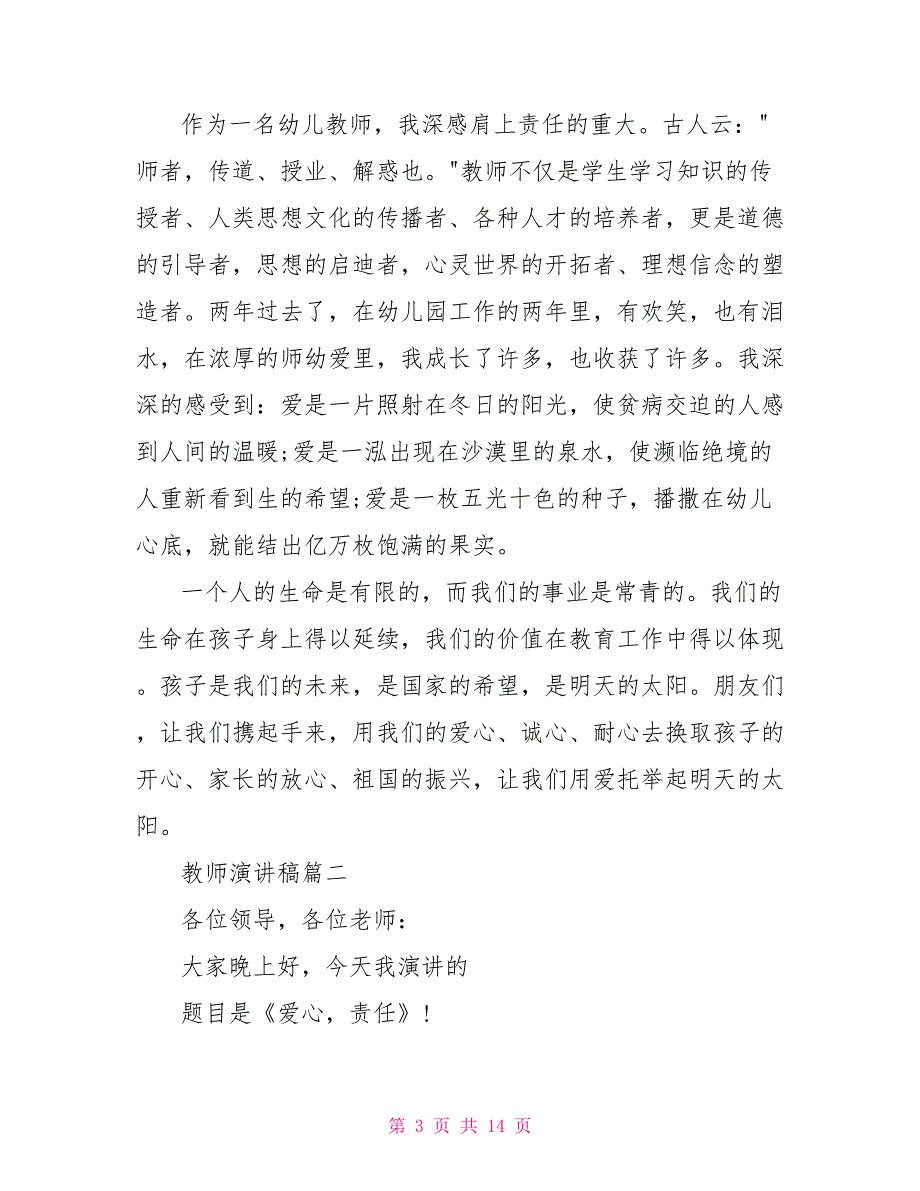 作为一名幼儿教师，我深感肩上责任的重大。古人云："
师者，传道、授业、解惑也。"教师不仅是学生学习知识的传
授者、人类思想文化的传播者、各种人才的培养者，更是道德
的引导者，思想的启迪者，心灵世界的开拓者、理想信念的塑
造者。两年过去了，在幼儿园工作的两年里，有欢笑，也有泪
水，在浓厚的师幼爱里，我成长了许多，也收获了许多。我深
深的感受到：爱是一片照射在冬日的阳光，使贫病交迫的人感
到人间的温暖;爱是一泓出现在沙漠里的泉水，使濒临绝境的
人重新看到生的希望;爱是一枚五光十色的种子，播撒在幼儿
心底，就能结出亿万枚饱满的果实。
一个人的生命是有限的，而我们的事业是常青的。我们的
生命在孩子身上得以延续，我们的价值在教育工作中得以体现
。孩子是我们的未来，是国家的希望，是明天的太阳。朋友们
，让我们携起手来，用我们的爱心、诚心、耐心去换取孩子的
开心、家长的放心、祖国的振兴，让我们用爱托举起明天的太
阳。
教师演讲稿篇二
各位领导，各位老师：
大家晚上好，今天我演讲的
题目是《爱心，责任》!
第 3 页 共 14 页